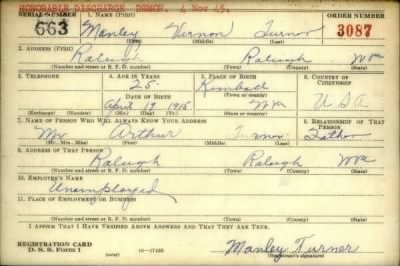 HONORABLE DISCHARGE DEMOB. 4 Nov 45.
SERIAL NUMBER 1. NAME (Print) ORDER NUMBER
663 Manley Vernon Turner 3087
(First) (Middle) (Last)
2. ADDRESS (Print)
Raleigh Raleigh W Va
(Number and street or R. F. D. number) (Town) (County) (State)
3. TELEPHONE 4. AGE IN YEARS 5. PLACE OF BIRTH 6. COUNTRY OF CITIZENSHIP
25 Kimball
DATE OF BIRTH (Town or county)
April 19 1915 W Va U S A
(Exchange) (Number) (Mo.) (Day) (Yr.) (State or country)
7. NAME OF PERSON WHO WILL ALWAYS KNOW YOUR ADDRESS 8. RELATIONSHIP OF THAT PERSON
Mr Arthur Turner Father
(Mr., Mrs., Miss) (First) (Middle) (Last)
9. ADDRESS OF THAT PERSON
Raleigh Raleigh W Va
(Number and street or R. F. D. number) (Town) (County) (State)
10. EMPLOYER'S NAME
Unemployed
11. PLACE OF EMPLOYMENT OR BUSINESS
(Number and street or R. F. D. number) (Town) (County) (State)
I AFFIRM THAT I HAVE VERIFIED ABOVE ANSWERS AND THAT THEY ARE TRUE.
REGISTRATION CARD
D. S. S. Form 1 16—17105 Manley Turner
(Registrant's signature)